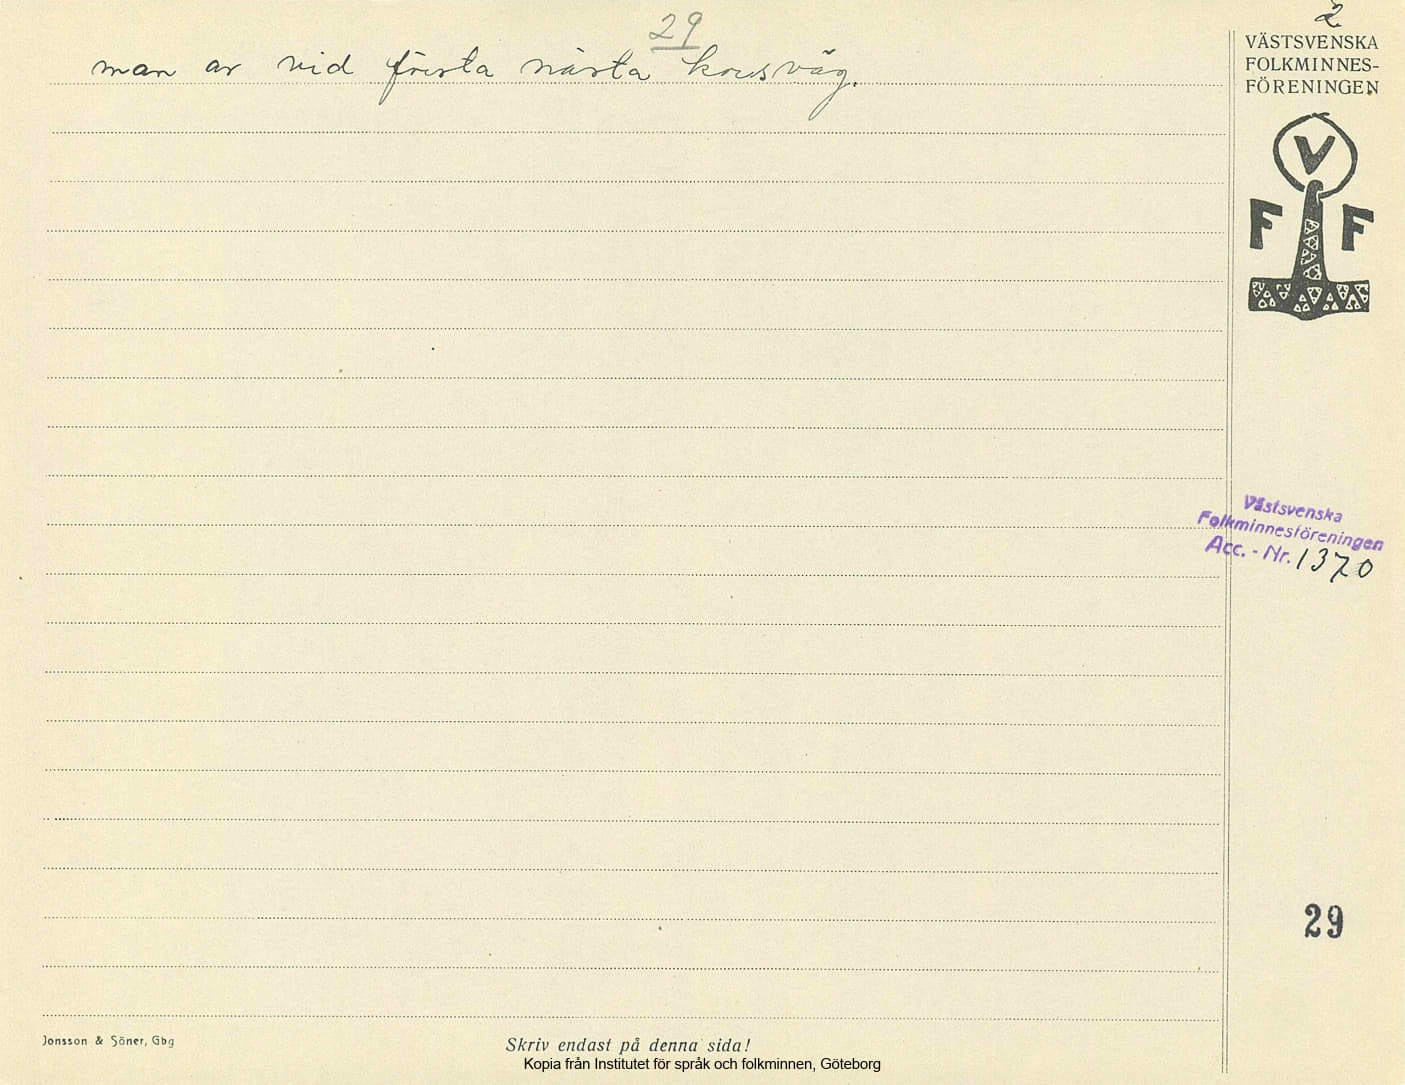 29
2
man av vid första nästa korsväg.
VÄSTSVENSKA
FOLKMINNES-
FÖRENINGEN
V
F F
Västsvenska
Folkminnesföreningen
Acc. - Nr. 1370
29
Jonsson & Söner, Gbg
Skriv endast på denna sida!
Kopia från Institutet för språk och folkminnen, Göteborg